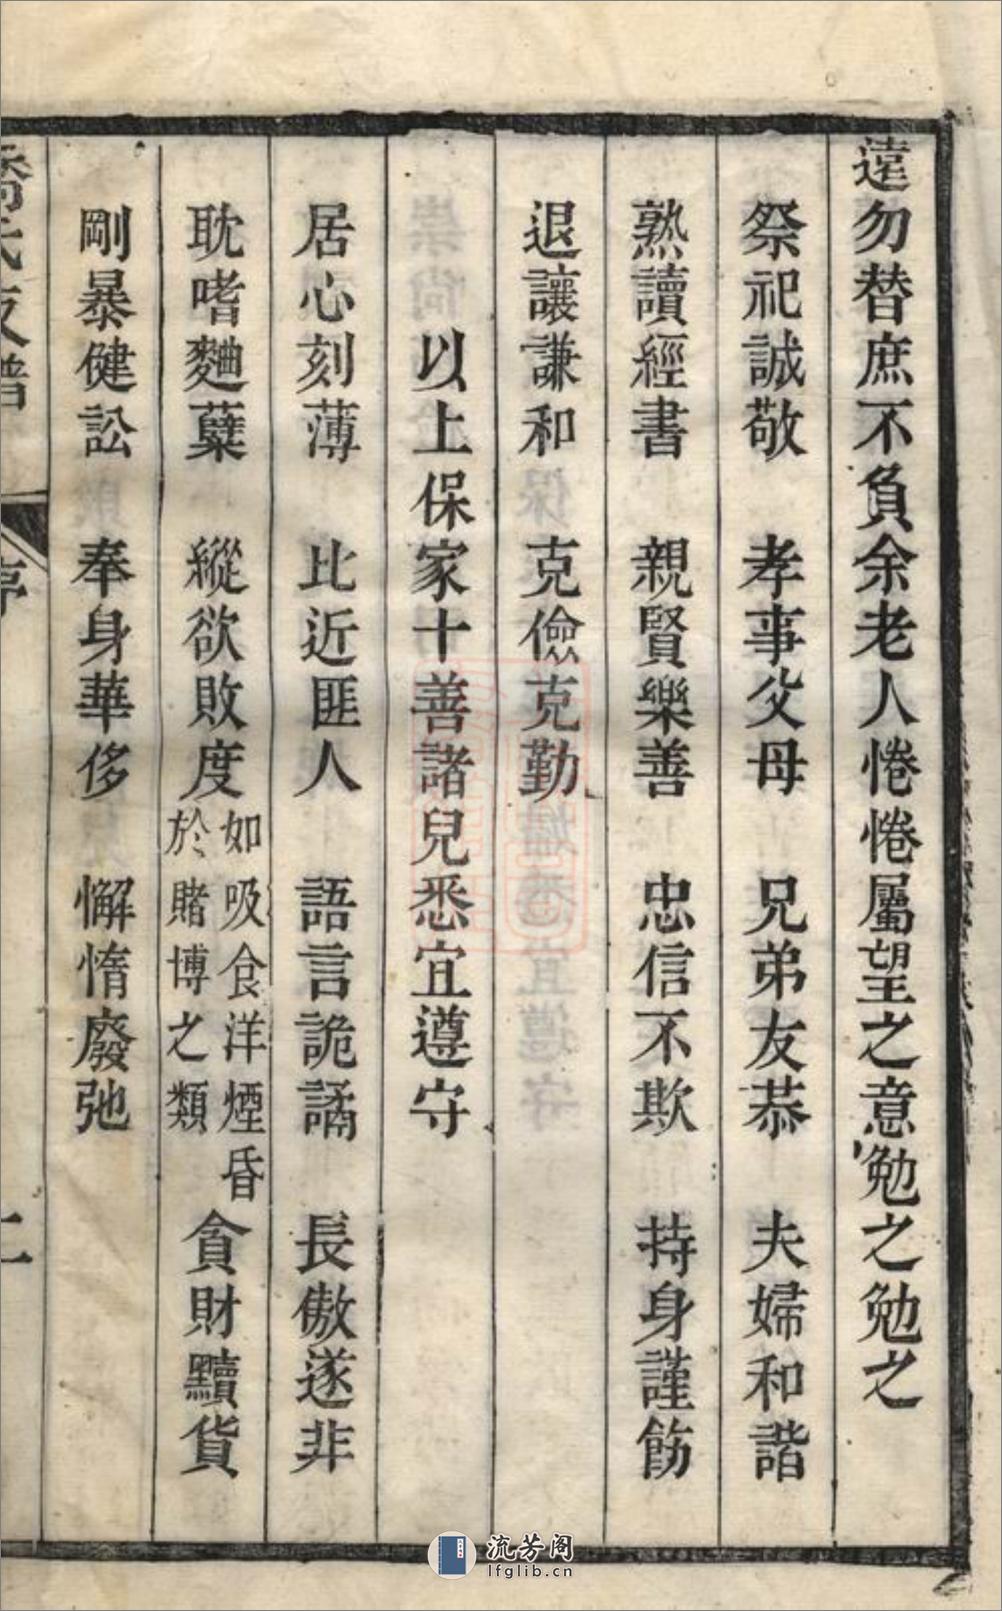 遠勿替庶不負余老人惓惓屬望之意勉之勉之
祭祀誠敬　孝事父母　兄弟友恭　夫婦和諧
熟讀經書　親賢樂善　忠信不欺　持身謹飭
退讓謙和　克儉克勤
以上保家十善諸兒悉宜遵守
居心刻薄　比近匪人　語言詭譎　長傲遂非
耽嗜麯蘗　縱欲敗度如吸食洋煙昏於賭博之類　貪財黷貨
剛暴健訟　奉身華侈　懈惰廢弛
流芳阁
lfglib.cn